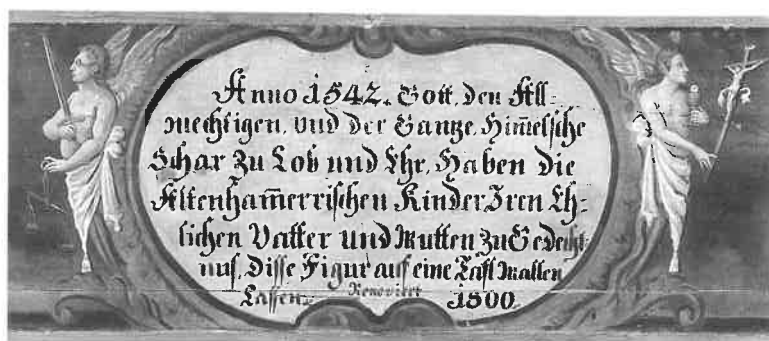 Anno 1542. Gott, den All=
mechtigen, und der Gantze, Him̃elsche
Schar Zu Lob und Ehr, Haben die
Altenham̃errischen Kinder Iren Eh=
lichen Vatter und Mutten Zu Gedecht
nus, Disse Figur auf eine Tafl Mallen
Lassen. Renoviert 1800